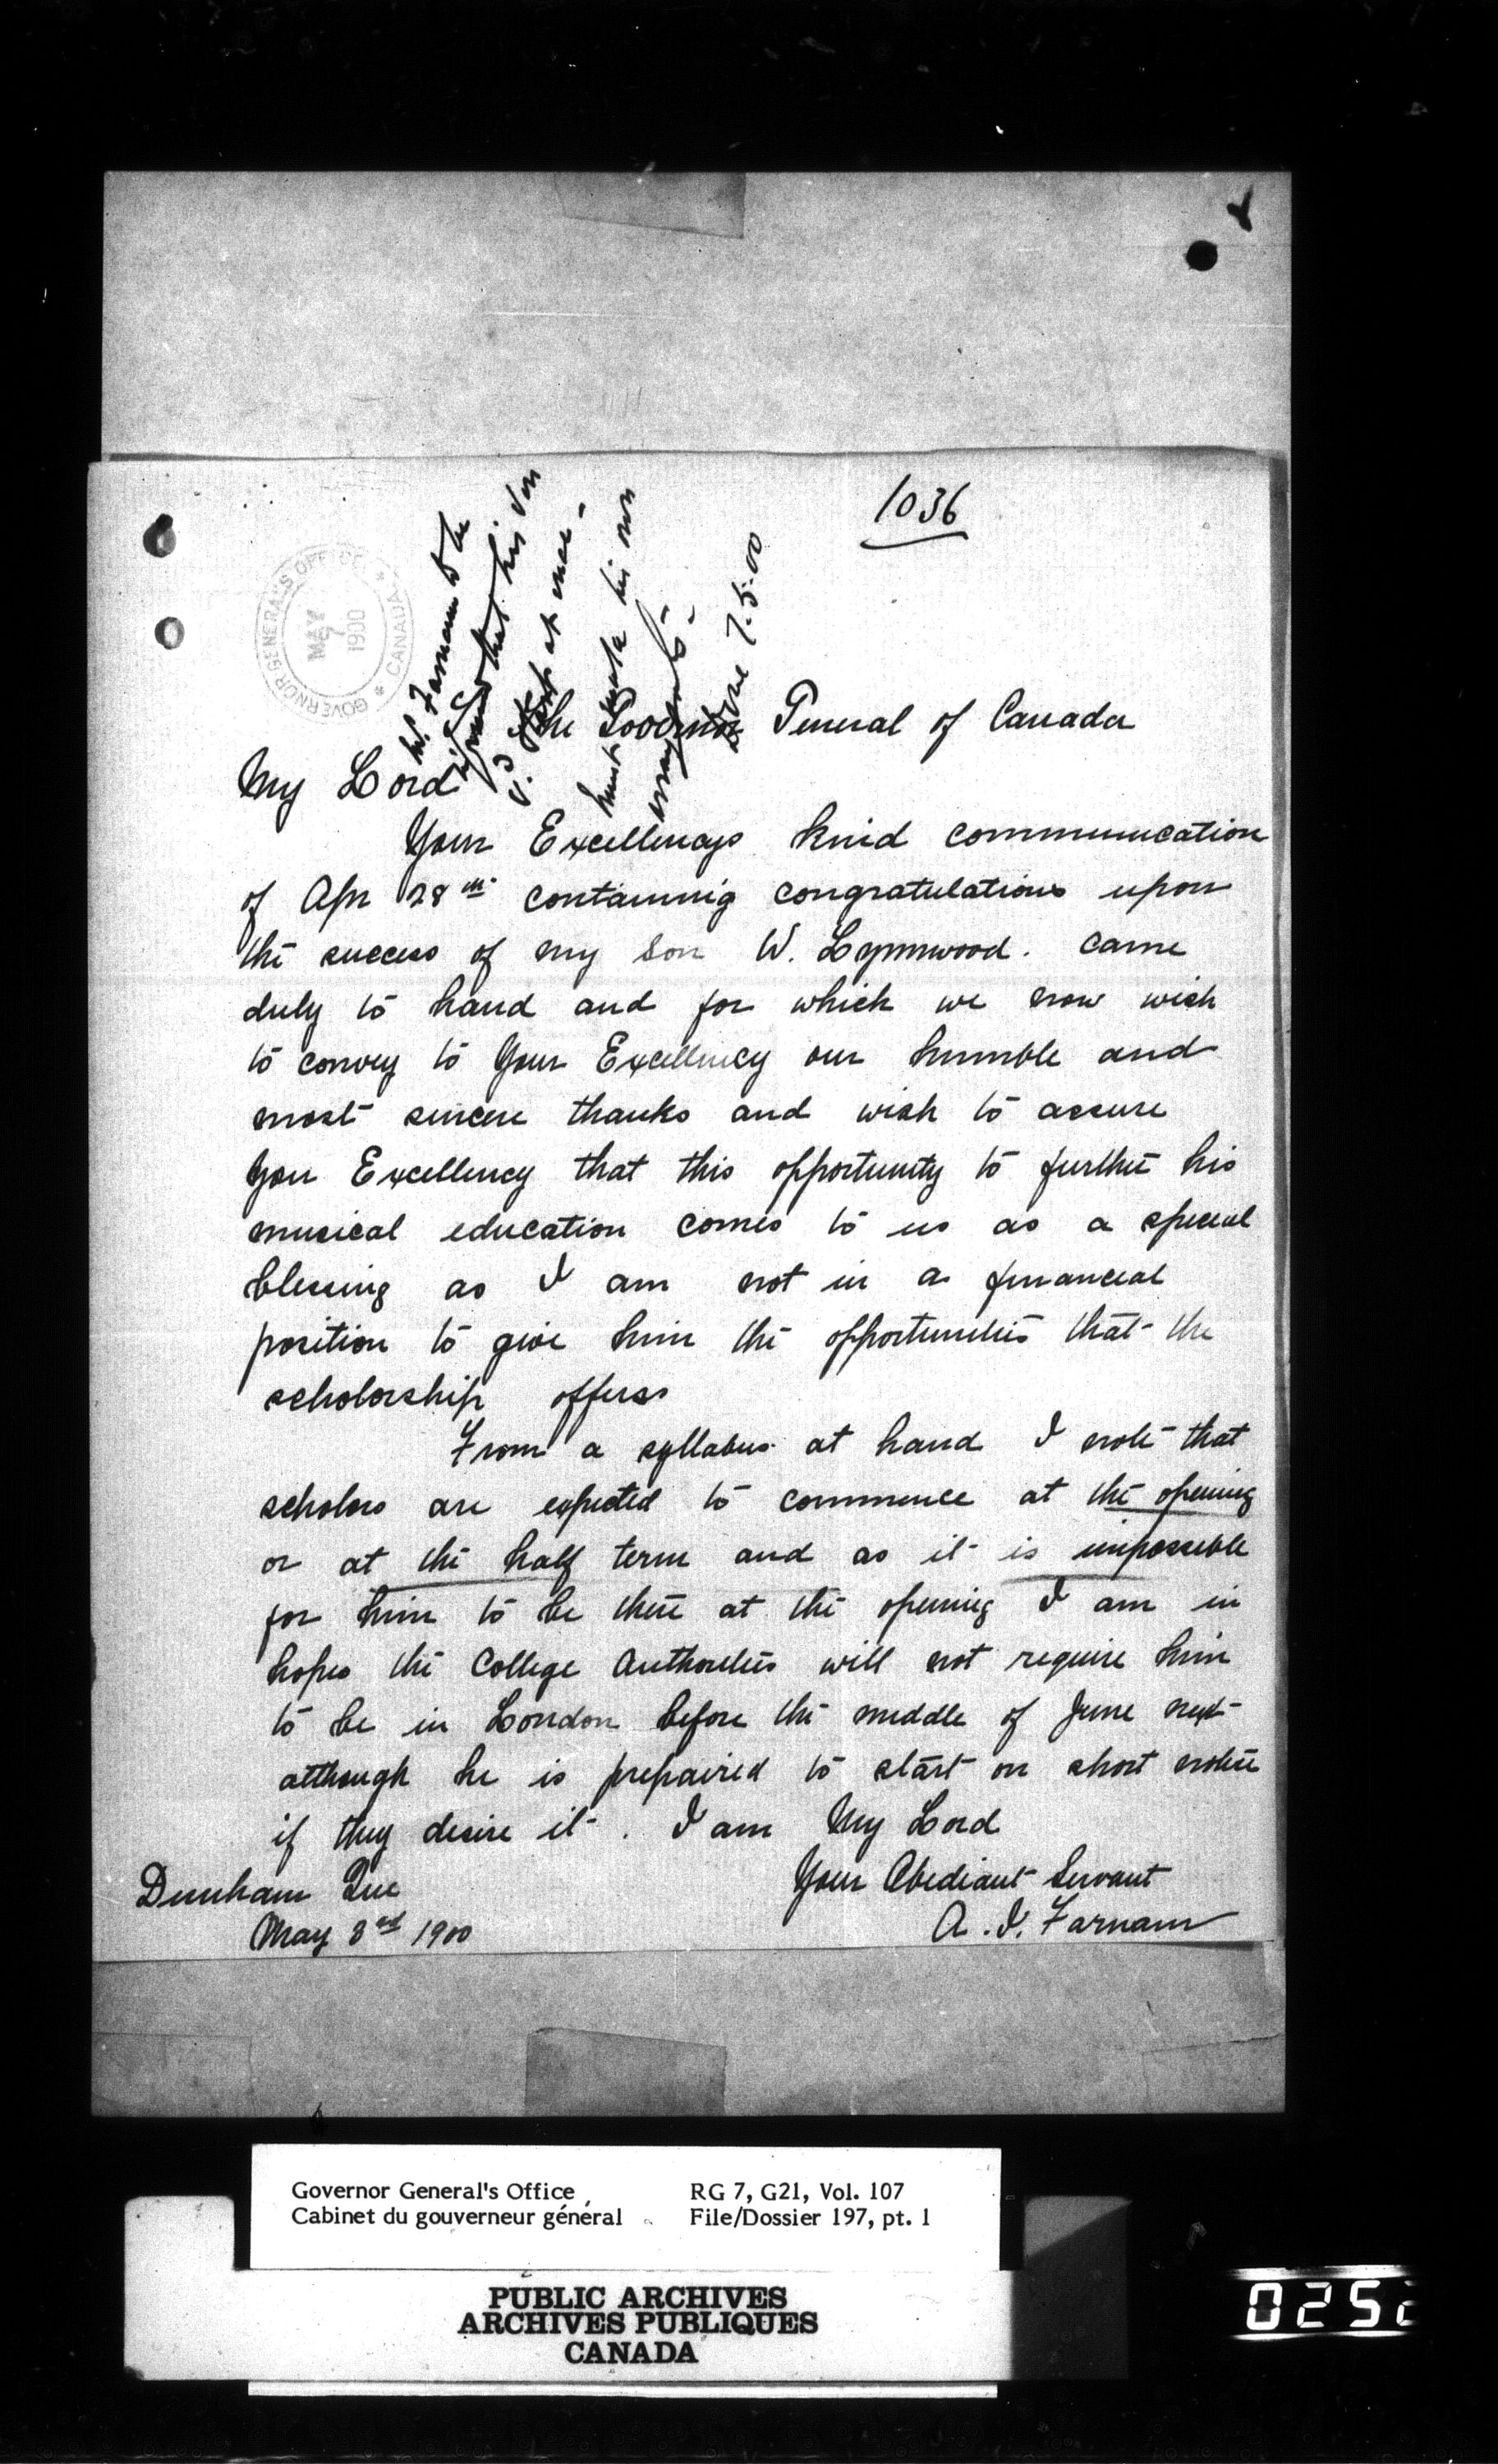 1036
GOVERNOR GENERAL'S OFFICE
CANADA
MAY
7
1900
Mr. Farnam to be
informed that his son
start at once -
must make his own
arrangements -
Done 7.5.00
The Governor General of Canada
My Lord
Your Excellencys kind communication
of Apr 28th containing congratulations upon
the success of my son W. Lynnwood. came
duly to hand and for which we now wish
to convey to Your Excellency our humble and
most sincere thanks and wish to assure
You Excellency that this opportunity to further his
musical education comes to us as a special
blessing as I am not in a financial
position to give him the opportunities that the
scholorship offers
From a syllabus at hand I note that
scholors are expected to commence at the opening
or at the half term and as it is impossible
for him to be there at the opening I am in
hopes the College Authorities will not require him
to be in London before the middle of June next
although he is prepaired to start on short notice
if they desire it. I am My Lord
Your Obediant Servant
A. I. Farnam
Dunham Que
May 3rd 1900
Governor General's Office
Cabinet du gouverneur général
RG 7, G21, Vol. 107
File/Dossier 197, pt. 1
PUBLIC ARCHIVES
ARCHIVES PUBLIQUES
CANADA
0252